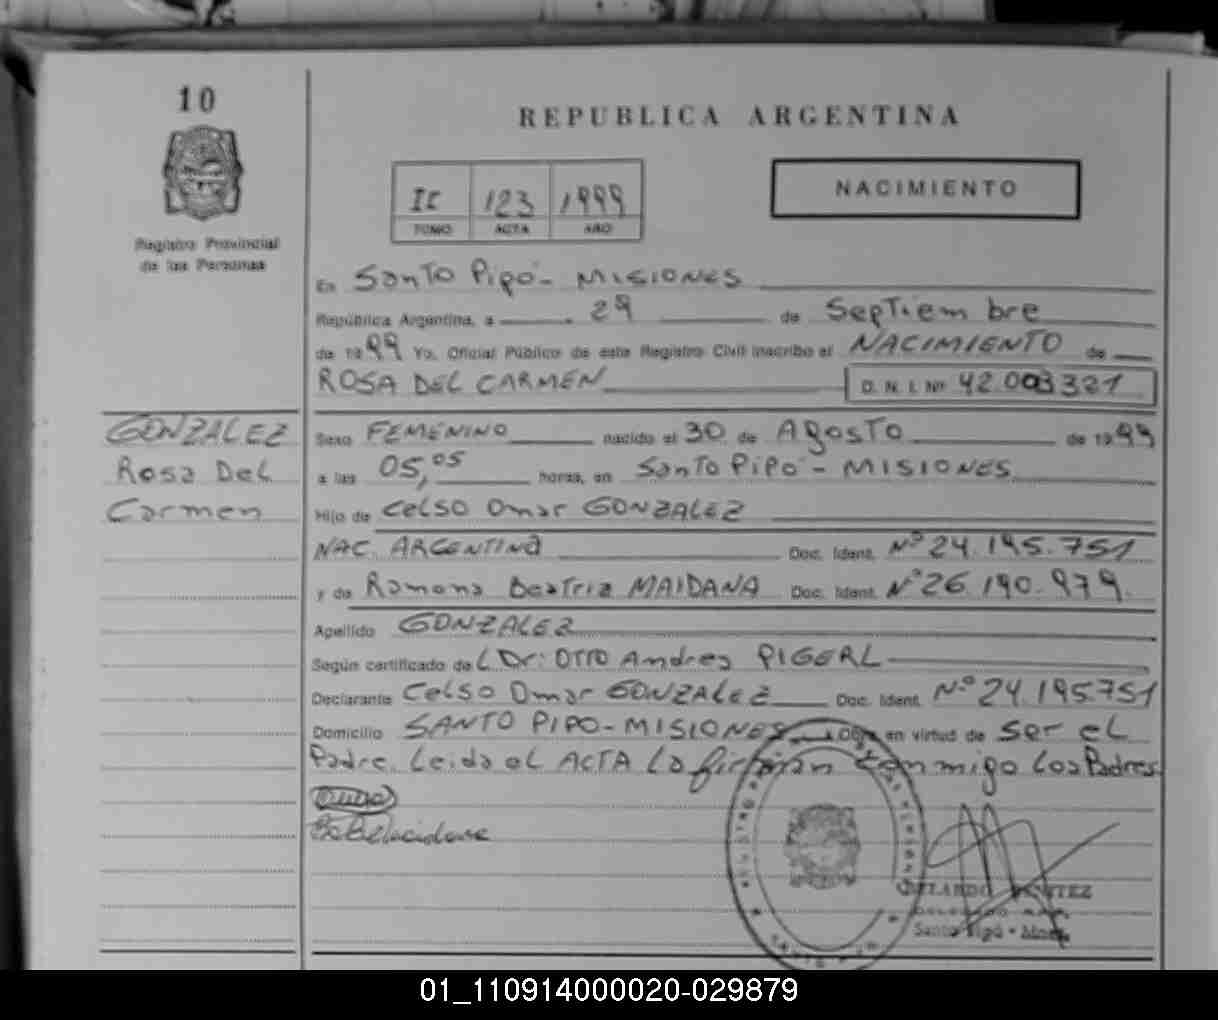 10
REPUBLICA ARGENTINA
II 123 1999
TOMO ACTA AÑO
NACIMIENTO
Registro Provincial
de las Personas
En Santo Pipó - MISIONES
República Argentina, a 29 de Septiembre
de 1999 Yo, Oficial Público de este Registro Civil inscribo el NACIMIENTO de
ROSA DEL CARMEN D. N. I. Nº 42.003321
GONZALEZ
Rosa Del
Carmen
Sexo FEMENINO nacido el 30 de Agosto de 1999
a las 05,05 horas, en Santo Pipó - MISIONES
Hijo de Celso Omar GONZALEZ
NAC. ARGENTINA Doc. Ident. Nº 24.195.751
y de Ramona Beatriz MAIDANA Doc. Ident. Nº 26.190.979.
Apellido GONZALEZ
Según certificado de Dr: OTTO Andres PIGERL
Declarante Celso Omar GONZALEZ Doc. Ident. Nº 24.195751
Domicilio SANTO PIPO - MISIONES Obra en virtud de ser el
Padre. Leida el ACTA la firman conmigo los Padres
BENITEZ
Santo Pipó - Mnes.
01_110914000020-029879